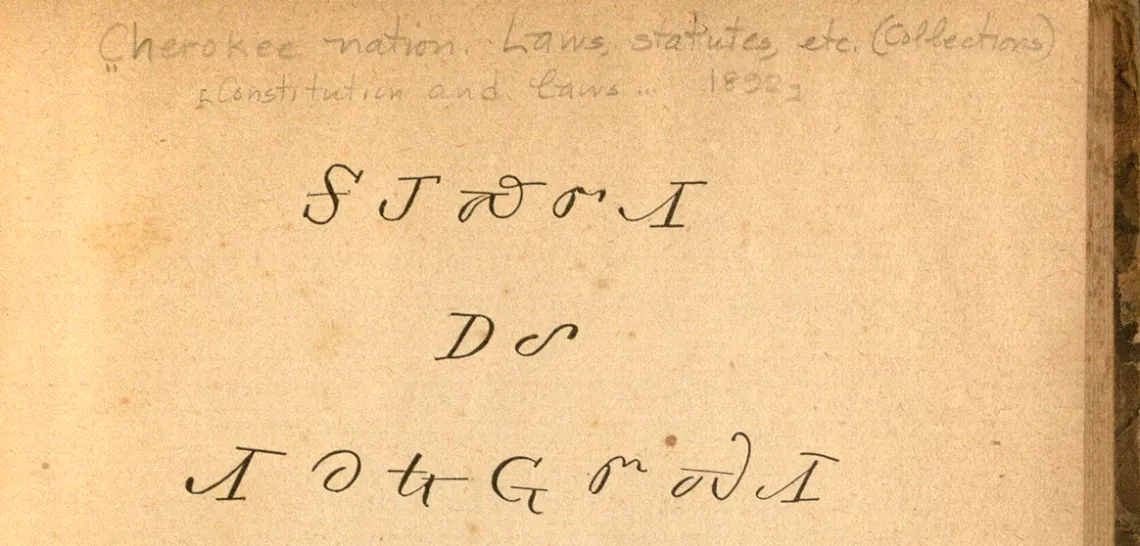 Cherokee nation. Laws, statutes, etc. (Collections)
[Constitution and laws ... 1892]
ᎦᎫᏍᏛᏗ
ᎠᎴ
ᏗᎧᎿᏩᏛᏍᏗ